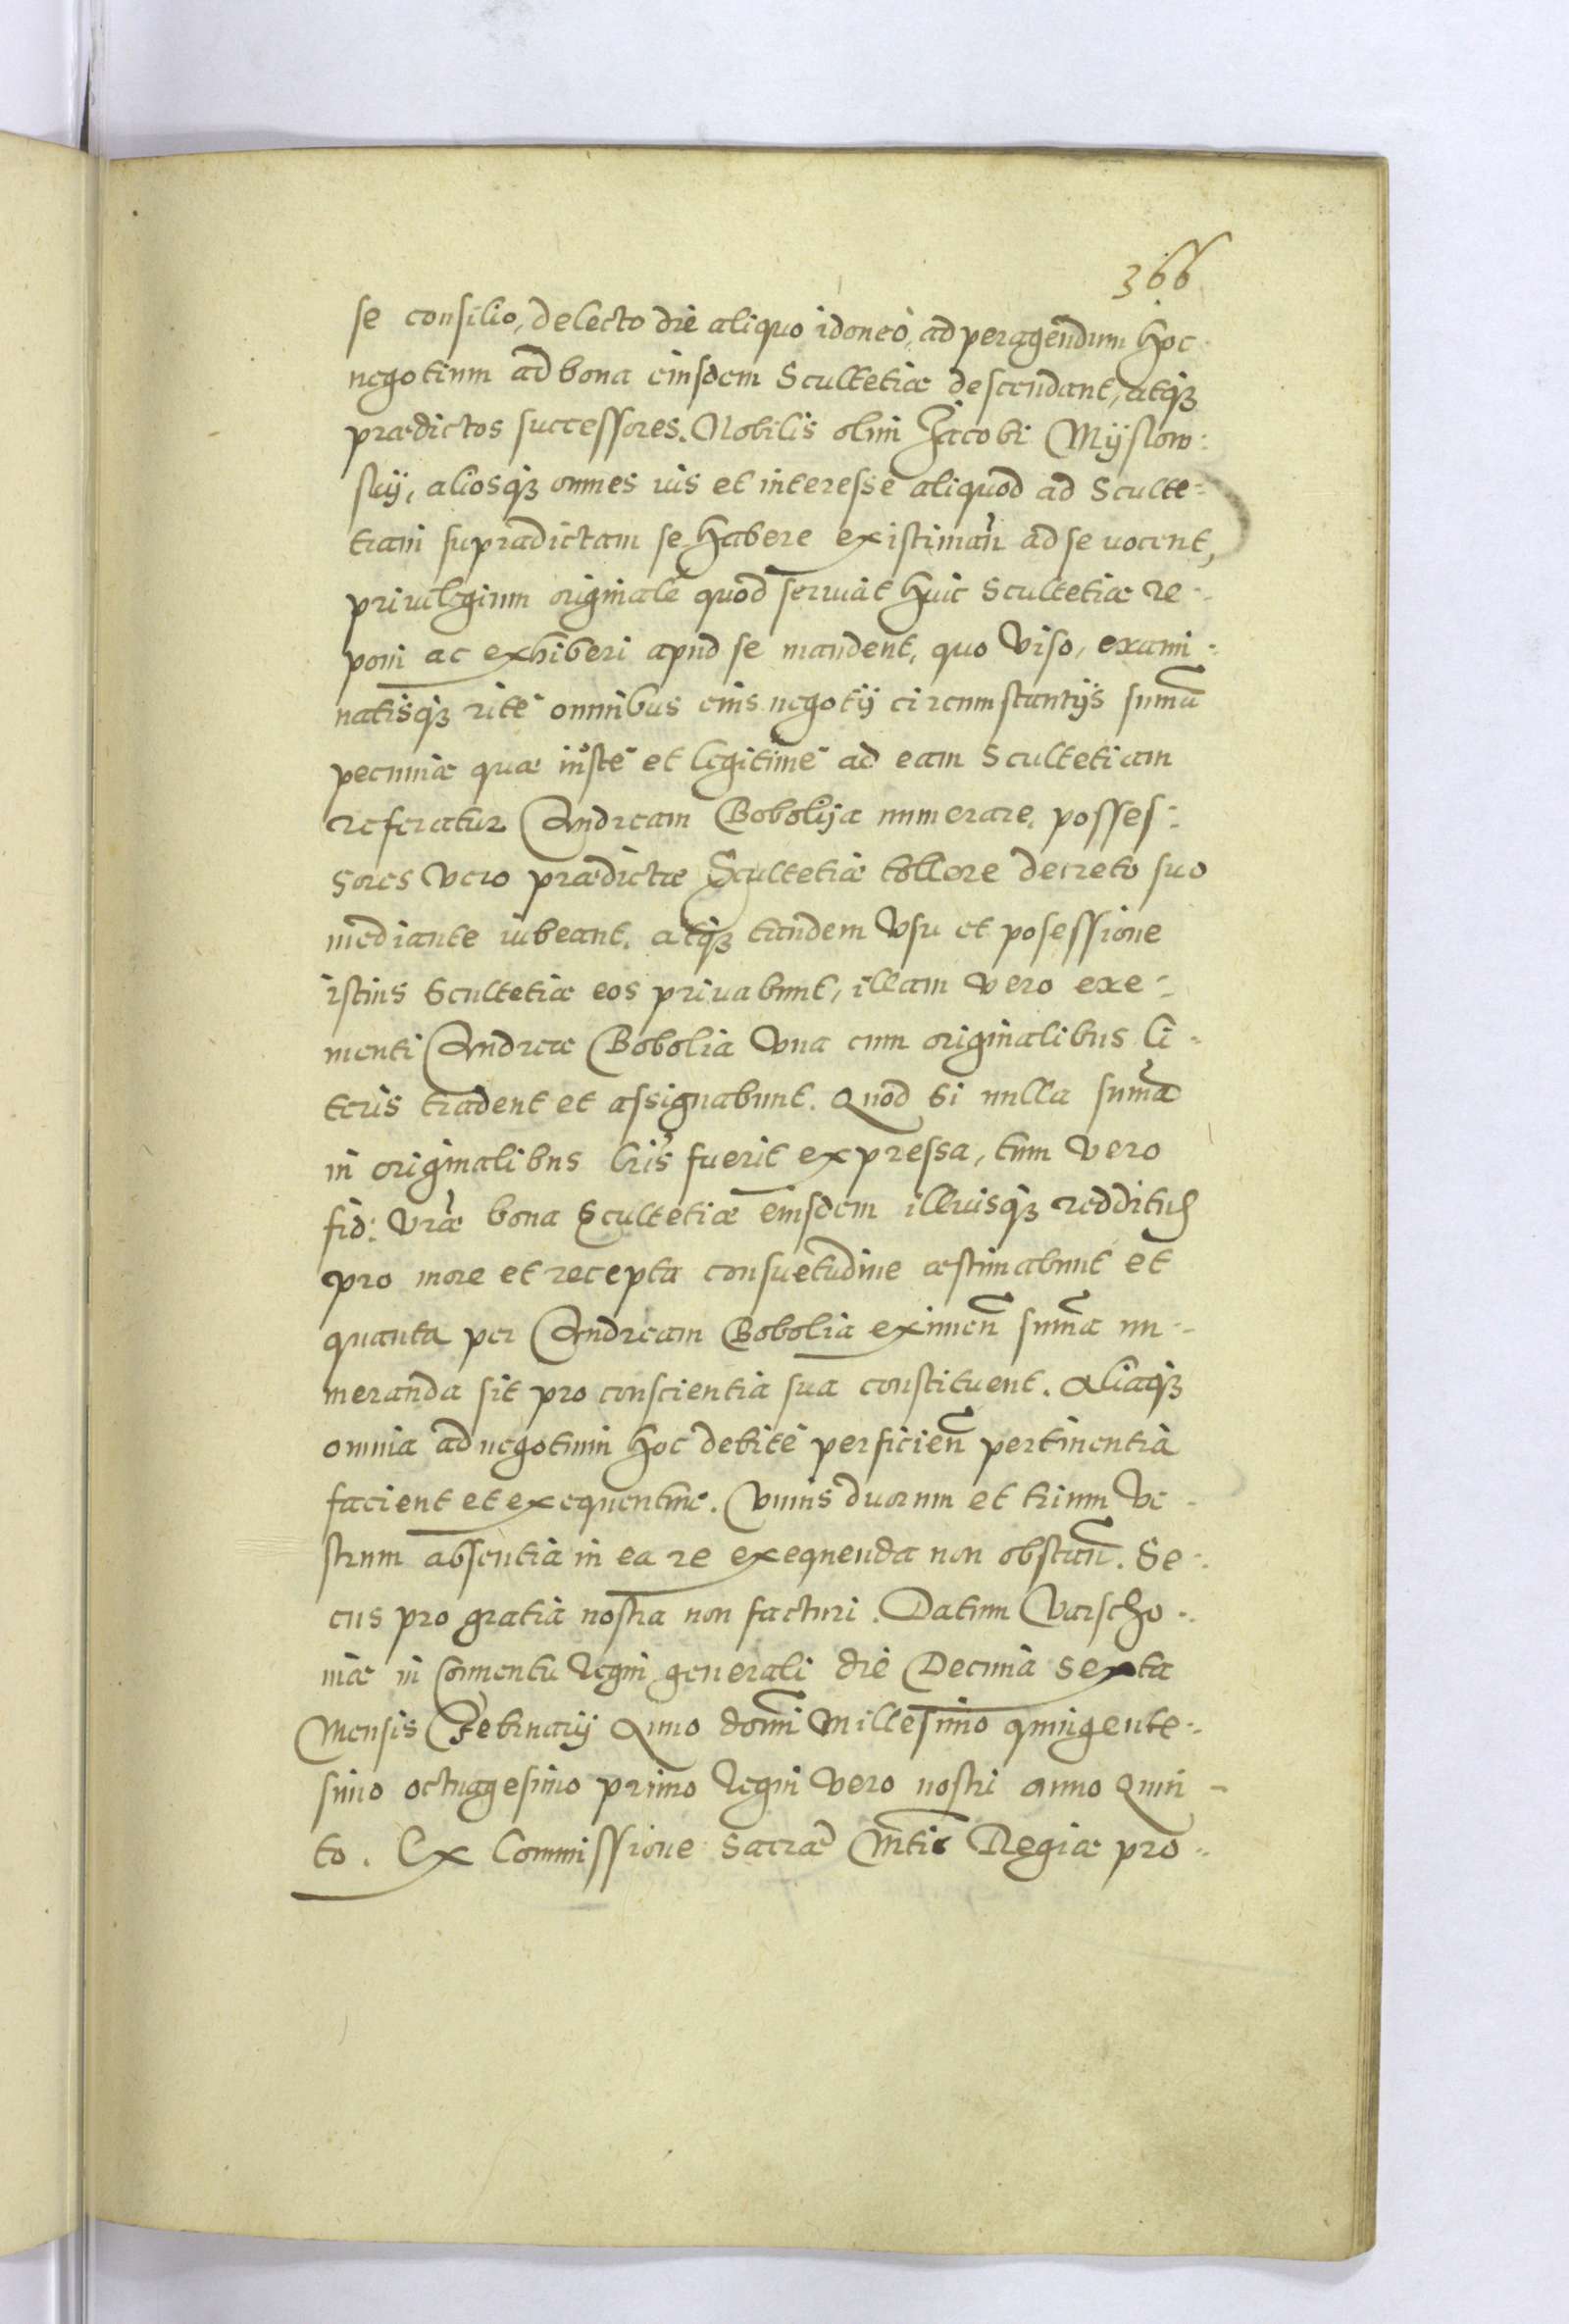 366
se consilio, delecto die aliquo idoneo, ad peragendum hoc
negotium ad bona eiusdem Scultetiæ descendant, atq3
prædictos successores. Nobilis olim Jacobi Myslow:
skij, aliosq3 omnes ius et interesse aliquod ad Sculte-
tiam supradictam se habere existiman̄ ad se vocent,
privilegium originale quod serviat huic Scultetiæ re-
poni ac exhiberi apud se mandent, quo viso, exami-
natisq3 rite omnibus eius negotij circumstantijs sum̄a
pecuniæ quæ iuste et legitime ad eam Scultetiam
referatur Andream Bobolija numerare, posses-
sores vero prædictæ Scultetiæ tollere decreto suo
mediante iubeant. atq3 tandem usu et posessione
istius Scultetiæ eos privabunt, illam vero exe-
menti Andreæ Bobolia vna cum originalibus li-
teris tradent et assignabunt. Quod si nulla sum̄a
in originalibus lr̄is fuerit expressa, tum vero
fid: vr̄æ bona Scultetiæ eiusdem illiusq3 redditus
pro more et recepta consuetudine æstimabunt et
quanta per Andream Bobolia eximen̄ sum̄a nu-
meranda sit pro conscientia sua constituent. Aliaq3
omnia ad negotium hoc debite perficien̄ pertinentia
facient et exequentur. Vnius duorum et trium ve-
strum absentia in ea re exequenda non obstan̄. Se-
cus pro gratia nostra non facturi. Datum Varscho-
viæ in Conventu Regni generali die Decima Sexta
Mensis Februarij Anno dom̄i Millesimo quingente-
simo octuagesimo primo Regni vero nostri anno Quin-
to. Ex Commissione Sacræ Mt̄is Regiæ pro-